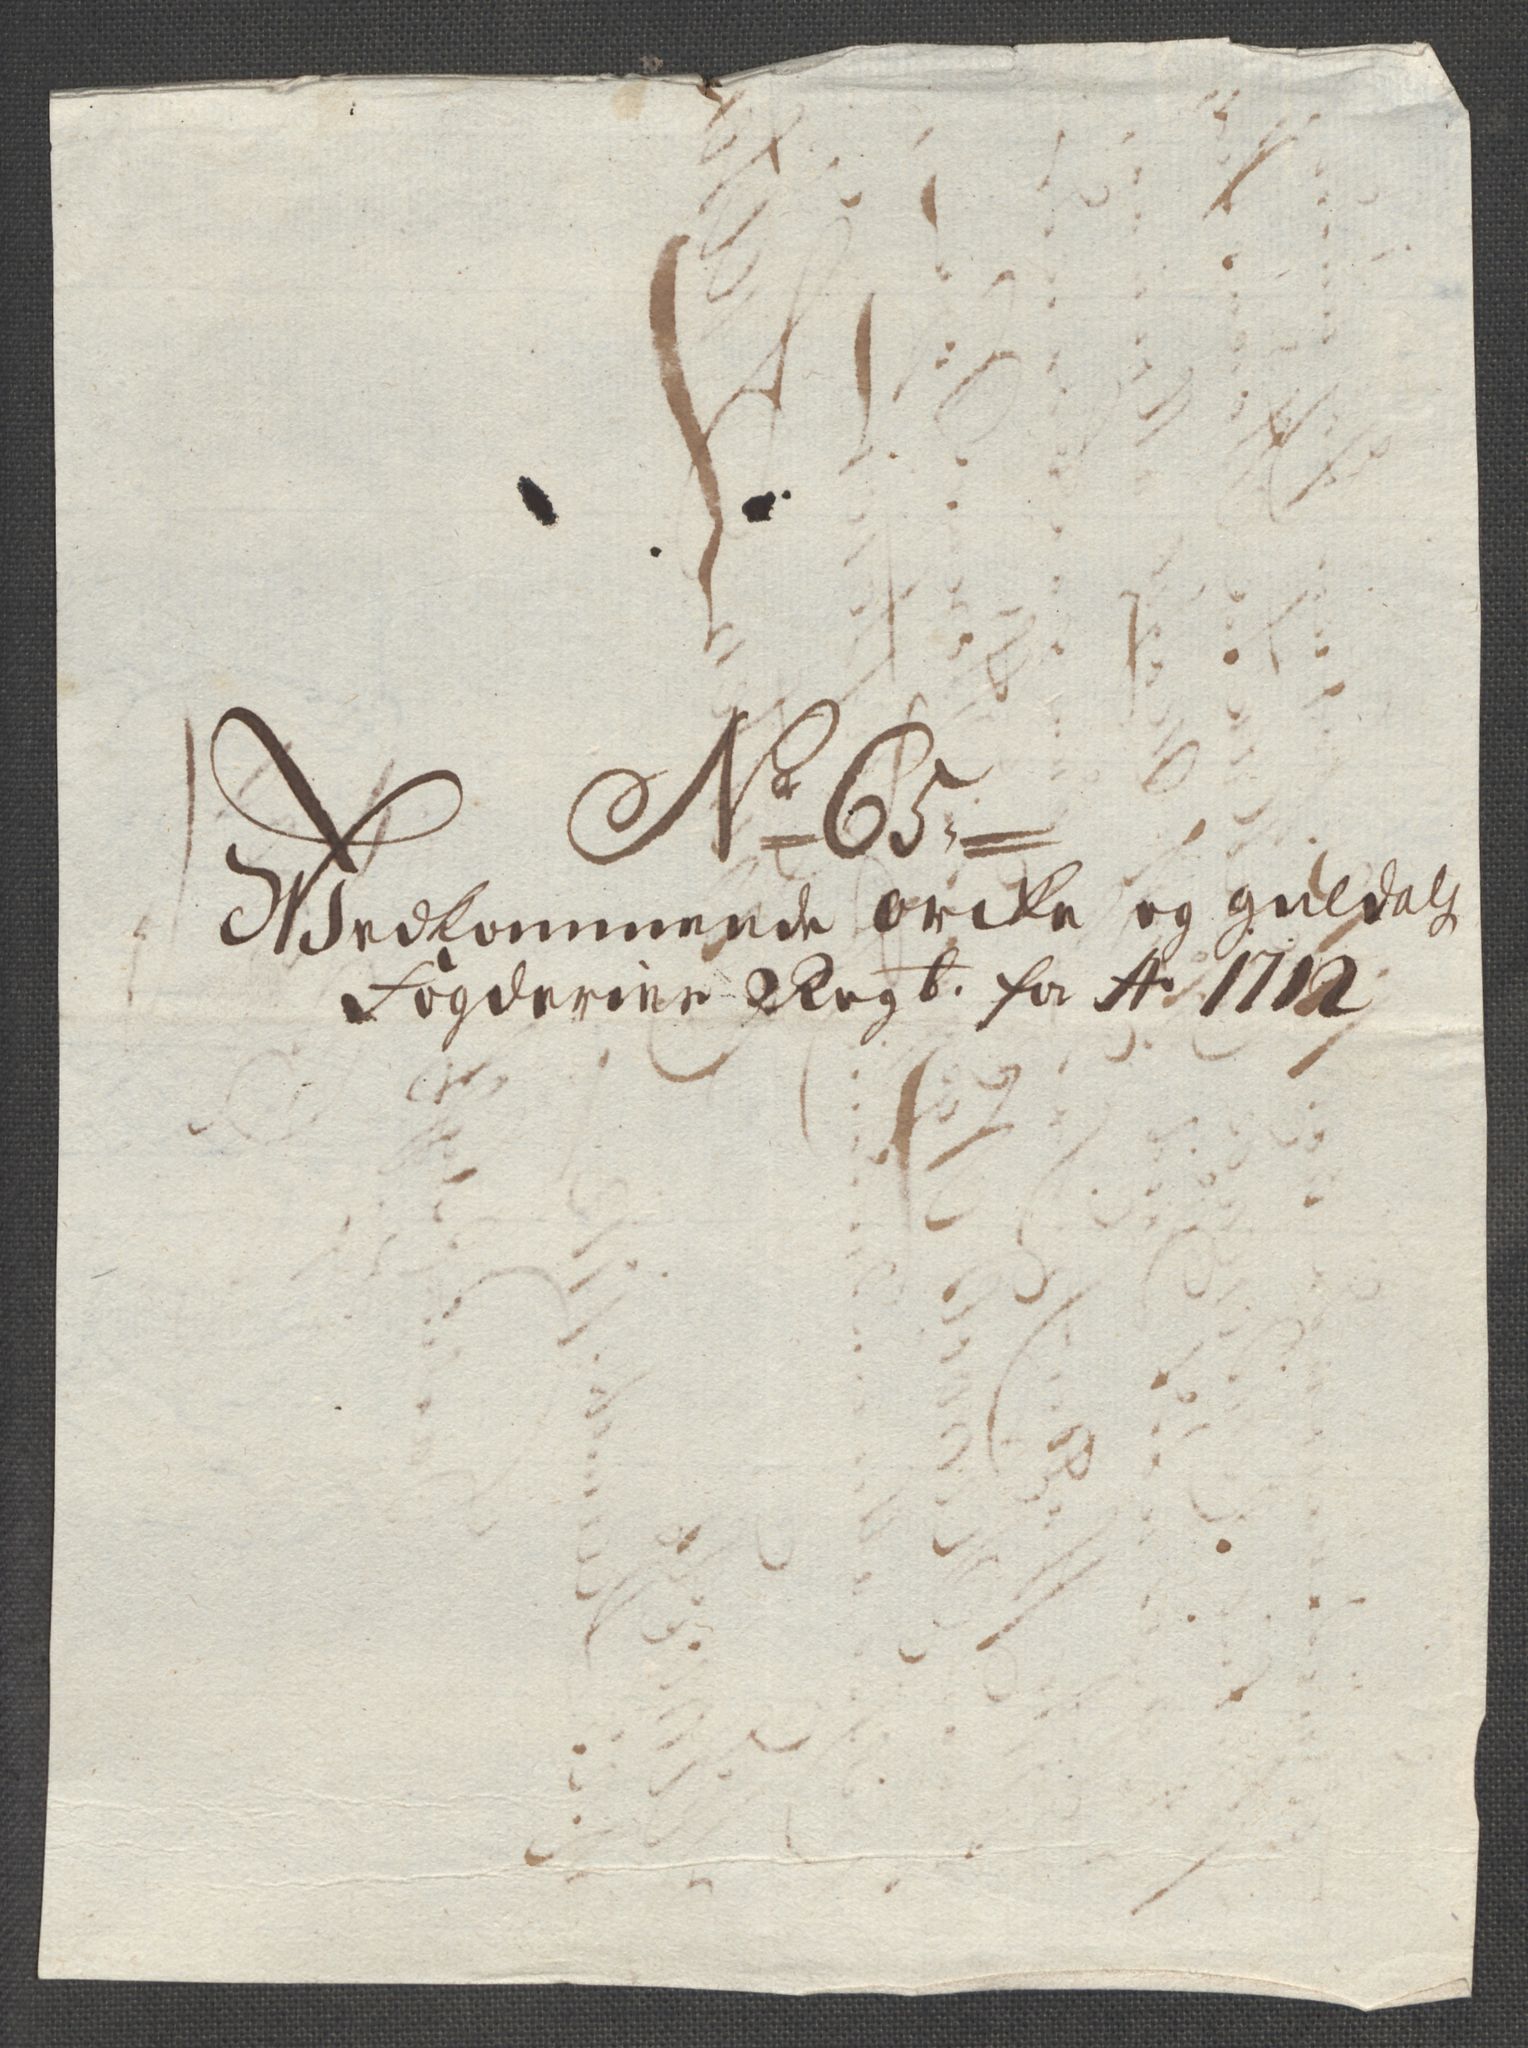 No 65.
Vedkommende Orcke og Guldals
Fogderier Regb. for Ao 1712